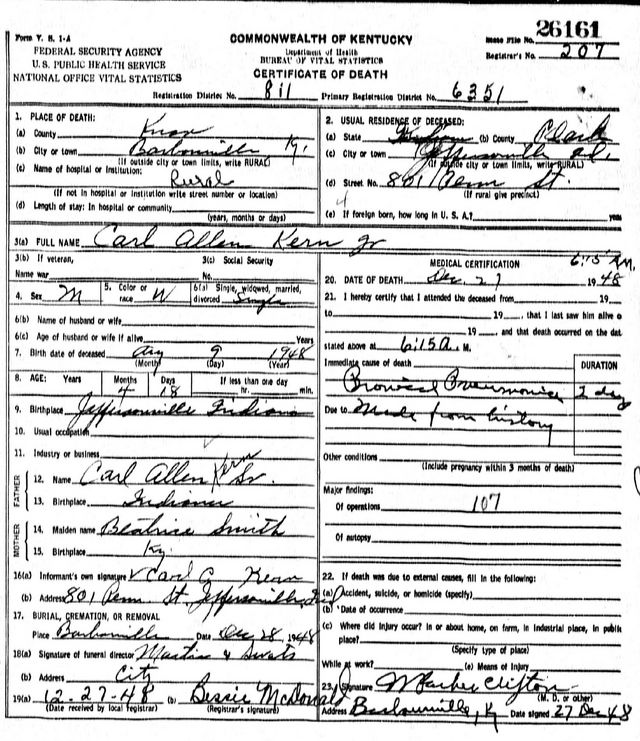 Form V. S. 1-A
FEDERAL SECURITY AGENCY
U. S. PUBLIC HEALTH SERVICE
NATIONAL OFFICE VITAL STATISTICS
COMMONWEALTH OF KENTUCKY
Department of Health
BUREAU OF VITAL STATISTICS
CERTIFICATE OF DEATH
26161
File No.
Registrar's No. 207
Registration District No. 811 Primary Registration District No. 6351
1. PLACE OF DEATH:
(a) County Knox
(b) City or town Barbourville Ky.
(If outside city or town limits, write RURAL)
(c) Name of hospital or institution:
Rural
(If not in hospital or institution write street number or location)
(d) Length of stay: In hospital or community
(years, months or days)
2. USUAL RESIDENCE OF DECEASED:
(a) State (b) County Clark
(c) City or town Jeffersonville Ind.
(If outside city or town limits, write RURAL)
(d) Street No. 801 Penn St.
(If rural give precinct)
(e) If foreign born, how long in U. S. A.? years
3(a) FULL NAME Carl Allen Kern Jr
3(b) If veteran,
Name war
3(c) Social Security
No.
4. Sex M
5. Color or race W
6(a) Single, widowed, married, divorced Single
6(b) Name of husband or wife
6(c) Age of husband or wife if alive Years
7. Birth date of deceased Aug 9 1948
(Month) (Day) (Year)
8. AGE: Years Months 4 Days 18 If less than one day hr. min.
9. Birthplace Jeffersonville Indiana
10. Usual occupation
11. Industry or business
FATHER
12. Name Carl Allen Kern Sr.
13. Birthplace Indiana
MOTHER
14. Maiden name Beatrice Smith
15. Birthplace Ky.
16(a) Informant's own signature Carl G Kern
(b) Address 801 Penn St. Jeffersonville, Ind
17. BURIAL, CREMATION, OR REMOVAL
Place Barbourville Date Dec 28 1948
18(a) Signature of funeral director Martin &
(b) Address City
19(a) 12-27-48 (b) Bessie McDonald
(Date received by local registrar) (Registrar's signature)
MEDICAL CERTIFICATION 6:15 A.M.
20. DATE OF DEATH Dec. 27 1948
21. I hereby certify that I attended the deceased from 19
to 19 , that I last saw him alive o
19 , and that death occurred on the dat
stated above at 6:15 a. M.
Immediate cause of death
DURATION
Pneumonia 2 day
Due to Made from history
Other conditions
(Include pregnancy within 3 months of death)
Major findings:
Of operations 107
Of autopsy
22. If death was due to external causes, fill in the following:
(a) Accident, suicide, or homicide (specify)
(b) Date of occurrence
(c) Where did injury occur? In or about home, on farm, in industrial place, in public
place?
(Specify type of place)
While at work? (e) Means of Injury
23. Signature Clifton
(M. D. or other)
Address Barbourville, Ky Date signed 27 Dec 48